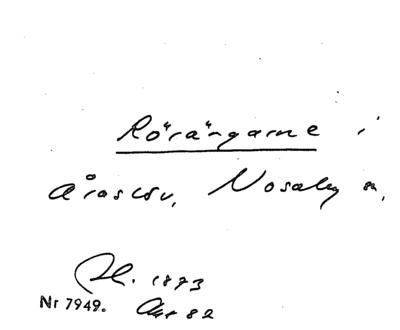 Rörängarne i
Åraslöv, Nosaby sn,
Pl. 1873
Nr 7949. Akt 82